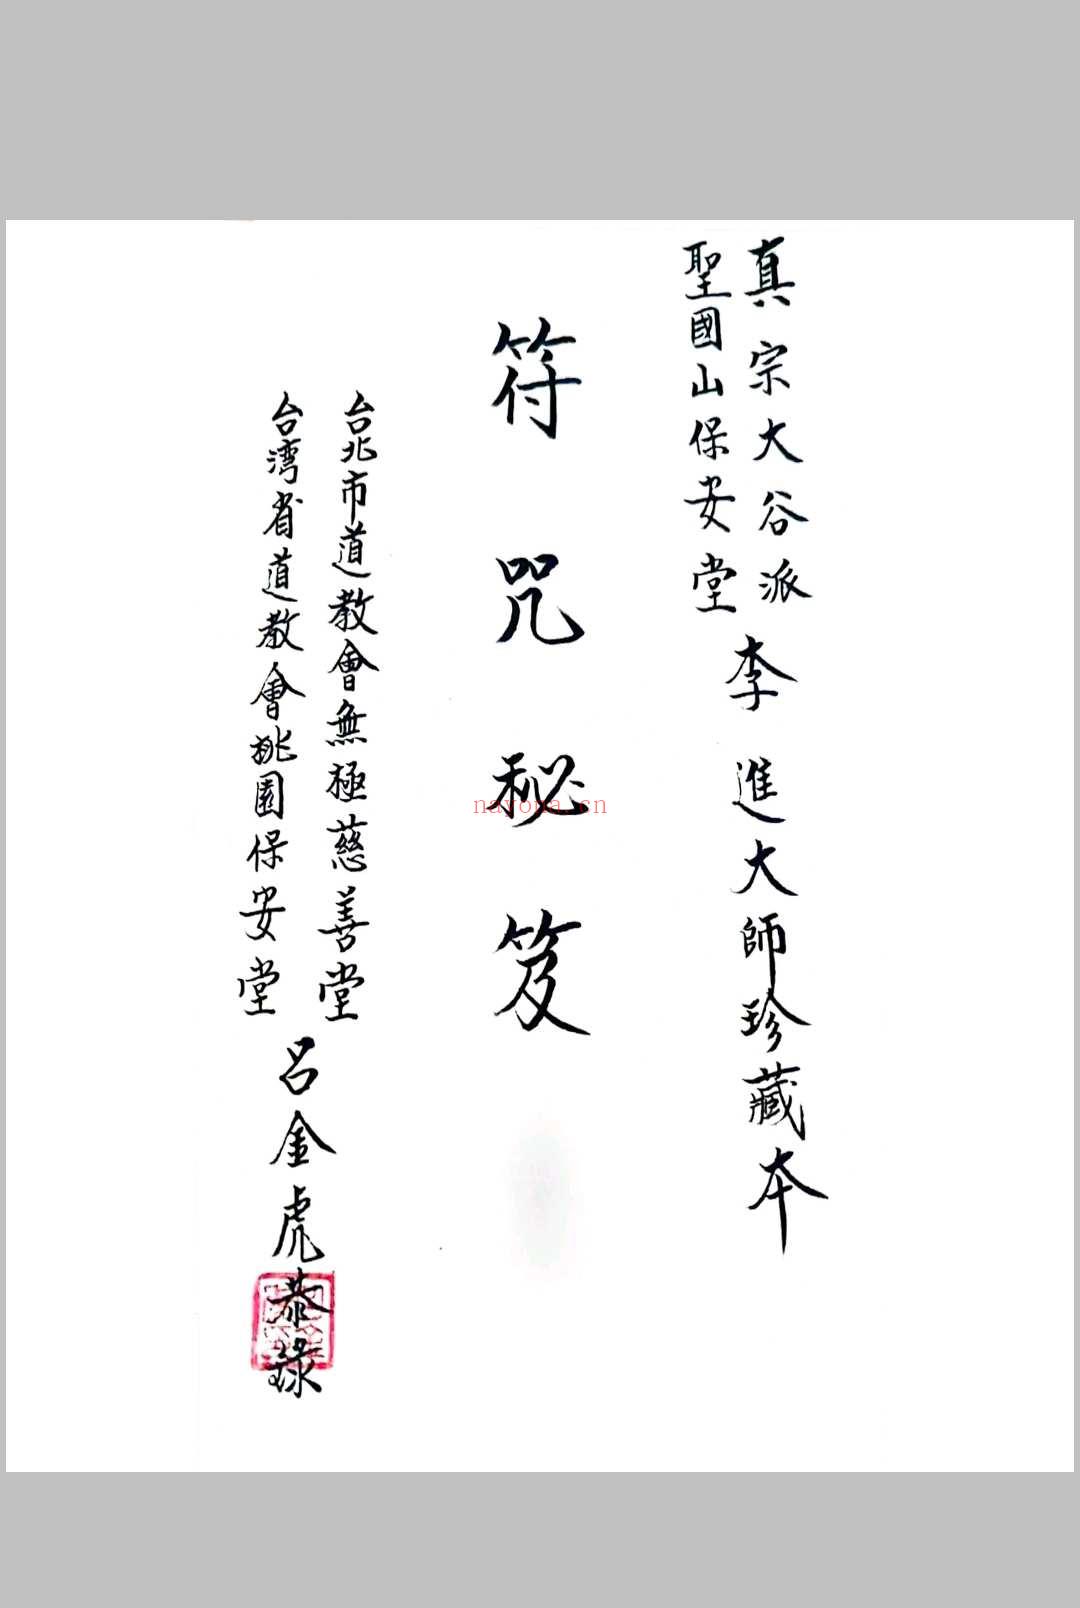 真宗大谷派
聖國山保安堂
李進大師珍藏本
符咒秘笈
台北市道教會無極慈善堂
台湾省道教會桃園保安堂
呂金虎恭録
nayona.cn